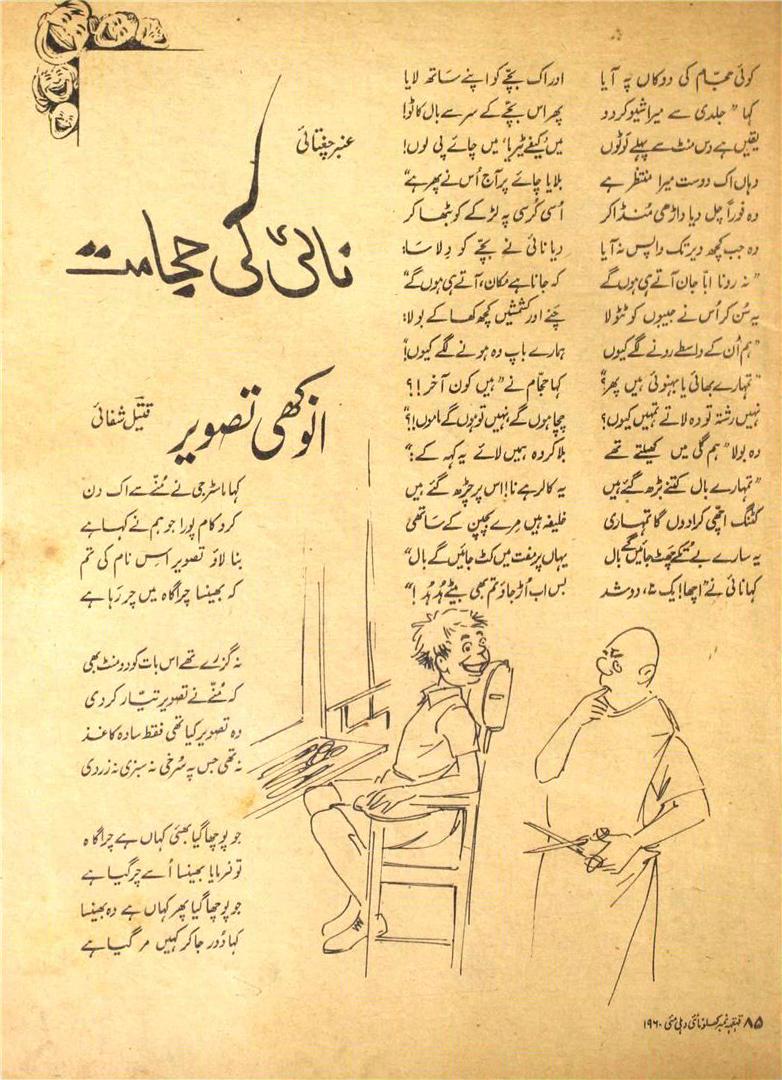 نائی کی حجامت
عنبر چغتائی
کوئی حجّام کی دوکاں پہ آیا
اور اک بچّے کو اپنے سَاتھ لایا
کہا "جلدی سے میرا شیو کر دو
پھر اس بچّے کے سر سے بال کاٹو!
یقیں ہے دس منٹ سے پہلے لَوٹوں
میں 'کیفے ٹیریا' میں چائے پی لوں!
وہاں اک دوست میرا منتظر ہے
بلایا چائے پر آج اُس نے پھر ہے"
وہ فوراً چل دیا داڑھی مُنڈا کر
اُسی کُرسی پہ لڑکے کو بٹھا کر
وہ جب کچھ دیر تک واپس نہ آیا
دیا نائی نے بچّے کو دِلاسَا:
"نہ رونا ابّا جان آتے ہی ہوں گے
کہ جانا ہے مکان، آتے ہی ہوں گے"
یہ سُن کر اُس نے جیبوں کو ٹٹولا
چنے اور کشمشیں کچھ کھا کے بولا:
"ہم اُن کے واسطے رونے لگے کیوں
ہمارے باپ وہ ہونے لگے کیوں!"
"تمہارے بھائی یا بہنوئی ہیں پھر؟"
کہا حجّام نے "ہیں کون آخر!؟
نہیں رشتہ تو وہ لاتے تمہیں کیوں؟
چچا ہوں گے، نہیں تو ہوں گے ماموں!؟"
وہ بولا "ہم گلی میں کھیلتے تھے
بلا کر وہ ہمیں لائے یہ کہہ کے:"
"تمہارے بال کتنے بڑھ گئے ہیں
یہ کالر ہے نا! اس پر چڑھ گئے ہیں
کٹنگ اچھی کرا دوں گا تمہاری
خلیفہ ہیں مرے بچپن کے ساتھی
یہ سارے بے تُکے چھٹ جائیں گے بال
یہاں پر مفت میں کٹ جائیں گے بال"
کہا نائی نے "اچھا! یک نہ، دو شد
بس اب اُڑ جاؤ تم بھی بیٹے ہُد ہُد!"
انوکھی تصویر
قتیلؔ شفائی
کہا ماسٹر جی نے مُنّے سے اک دن
کرو کام پورا جو ہم نے کہا ہے
بنا لاؤ تصویر اس نام کی تم
کہ بھینسا چراگاہ میں چر رَہا ہے
نہ گزرے تھے اس بات کو دو منٹ بھی
کہ مُنّے نے تصویر تیّار کر دی
وہ تصویر کیا تھی فقط سادہ کاغذ
نہ تھی جس پہ سُرخی نہ سبزی نہ زردی
جو پوچھا گیا بھئی کہاں ہے چراگاہ
تو فرمایا بھینسا اُسے چر گیا ہے
جو پوچھا گیا پھر کہاں ہے وہ بھینسا
کہا دُور جا کر کہیں مر گیا ہے
۸۵ قہقہہ نمبر کھلونا نئی دہلی مئی ۱۹۶۰